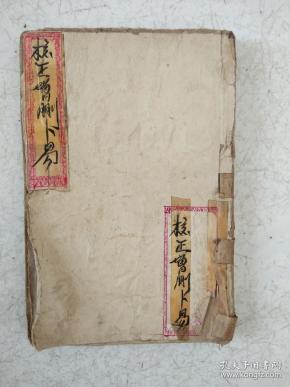 校正增删卜易
校正增删卜易
孔夫子旧书网